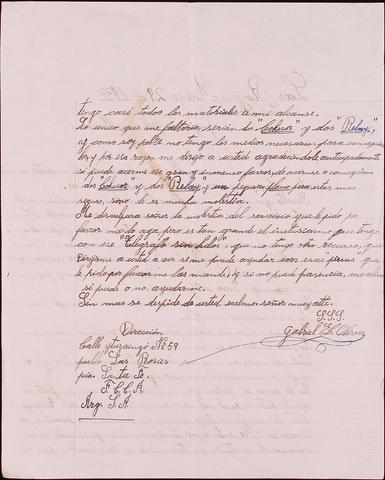 tengo casi todos los materiales a mi alcanse.
Lo unico que me faltaria serian dos "Cohesor" y dos "Relay,"
y como soy pobre no tengo los medios necesarios para conseguir-
los y por esa razon me dirijo a usted agradeciendole anticipadamente
si puede acerme ese gran y inmenso favor, de acerme o conseguirme
dos "Cohesor" y dos "Relay" y un pequeño plano para estar mas
seguro, sino le es mucha molestia.
Me disculpara señor la molestia del servicio que le pido por
favor me lo aga, pero es tan grande el entusiasmo que tengo
con ese "Telegrafo sin hilo", que no tengo otro recurso, que
dirijirme a usted a ver si me puede ayudar con esas "piesas" que
le pido por favor me las mande, y si no pude paciencia,
si pude o no ayudarme.
Sin mas se despide de usted señor muy atte.
S.S.S.
Gabriel
Dirección
Calle Ytuzaingó Nº 59
pueblo Las Rosas
pcia. Santa Fe.
F.C.C.A.
Arg. S.A.